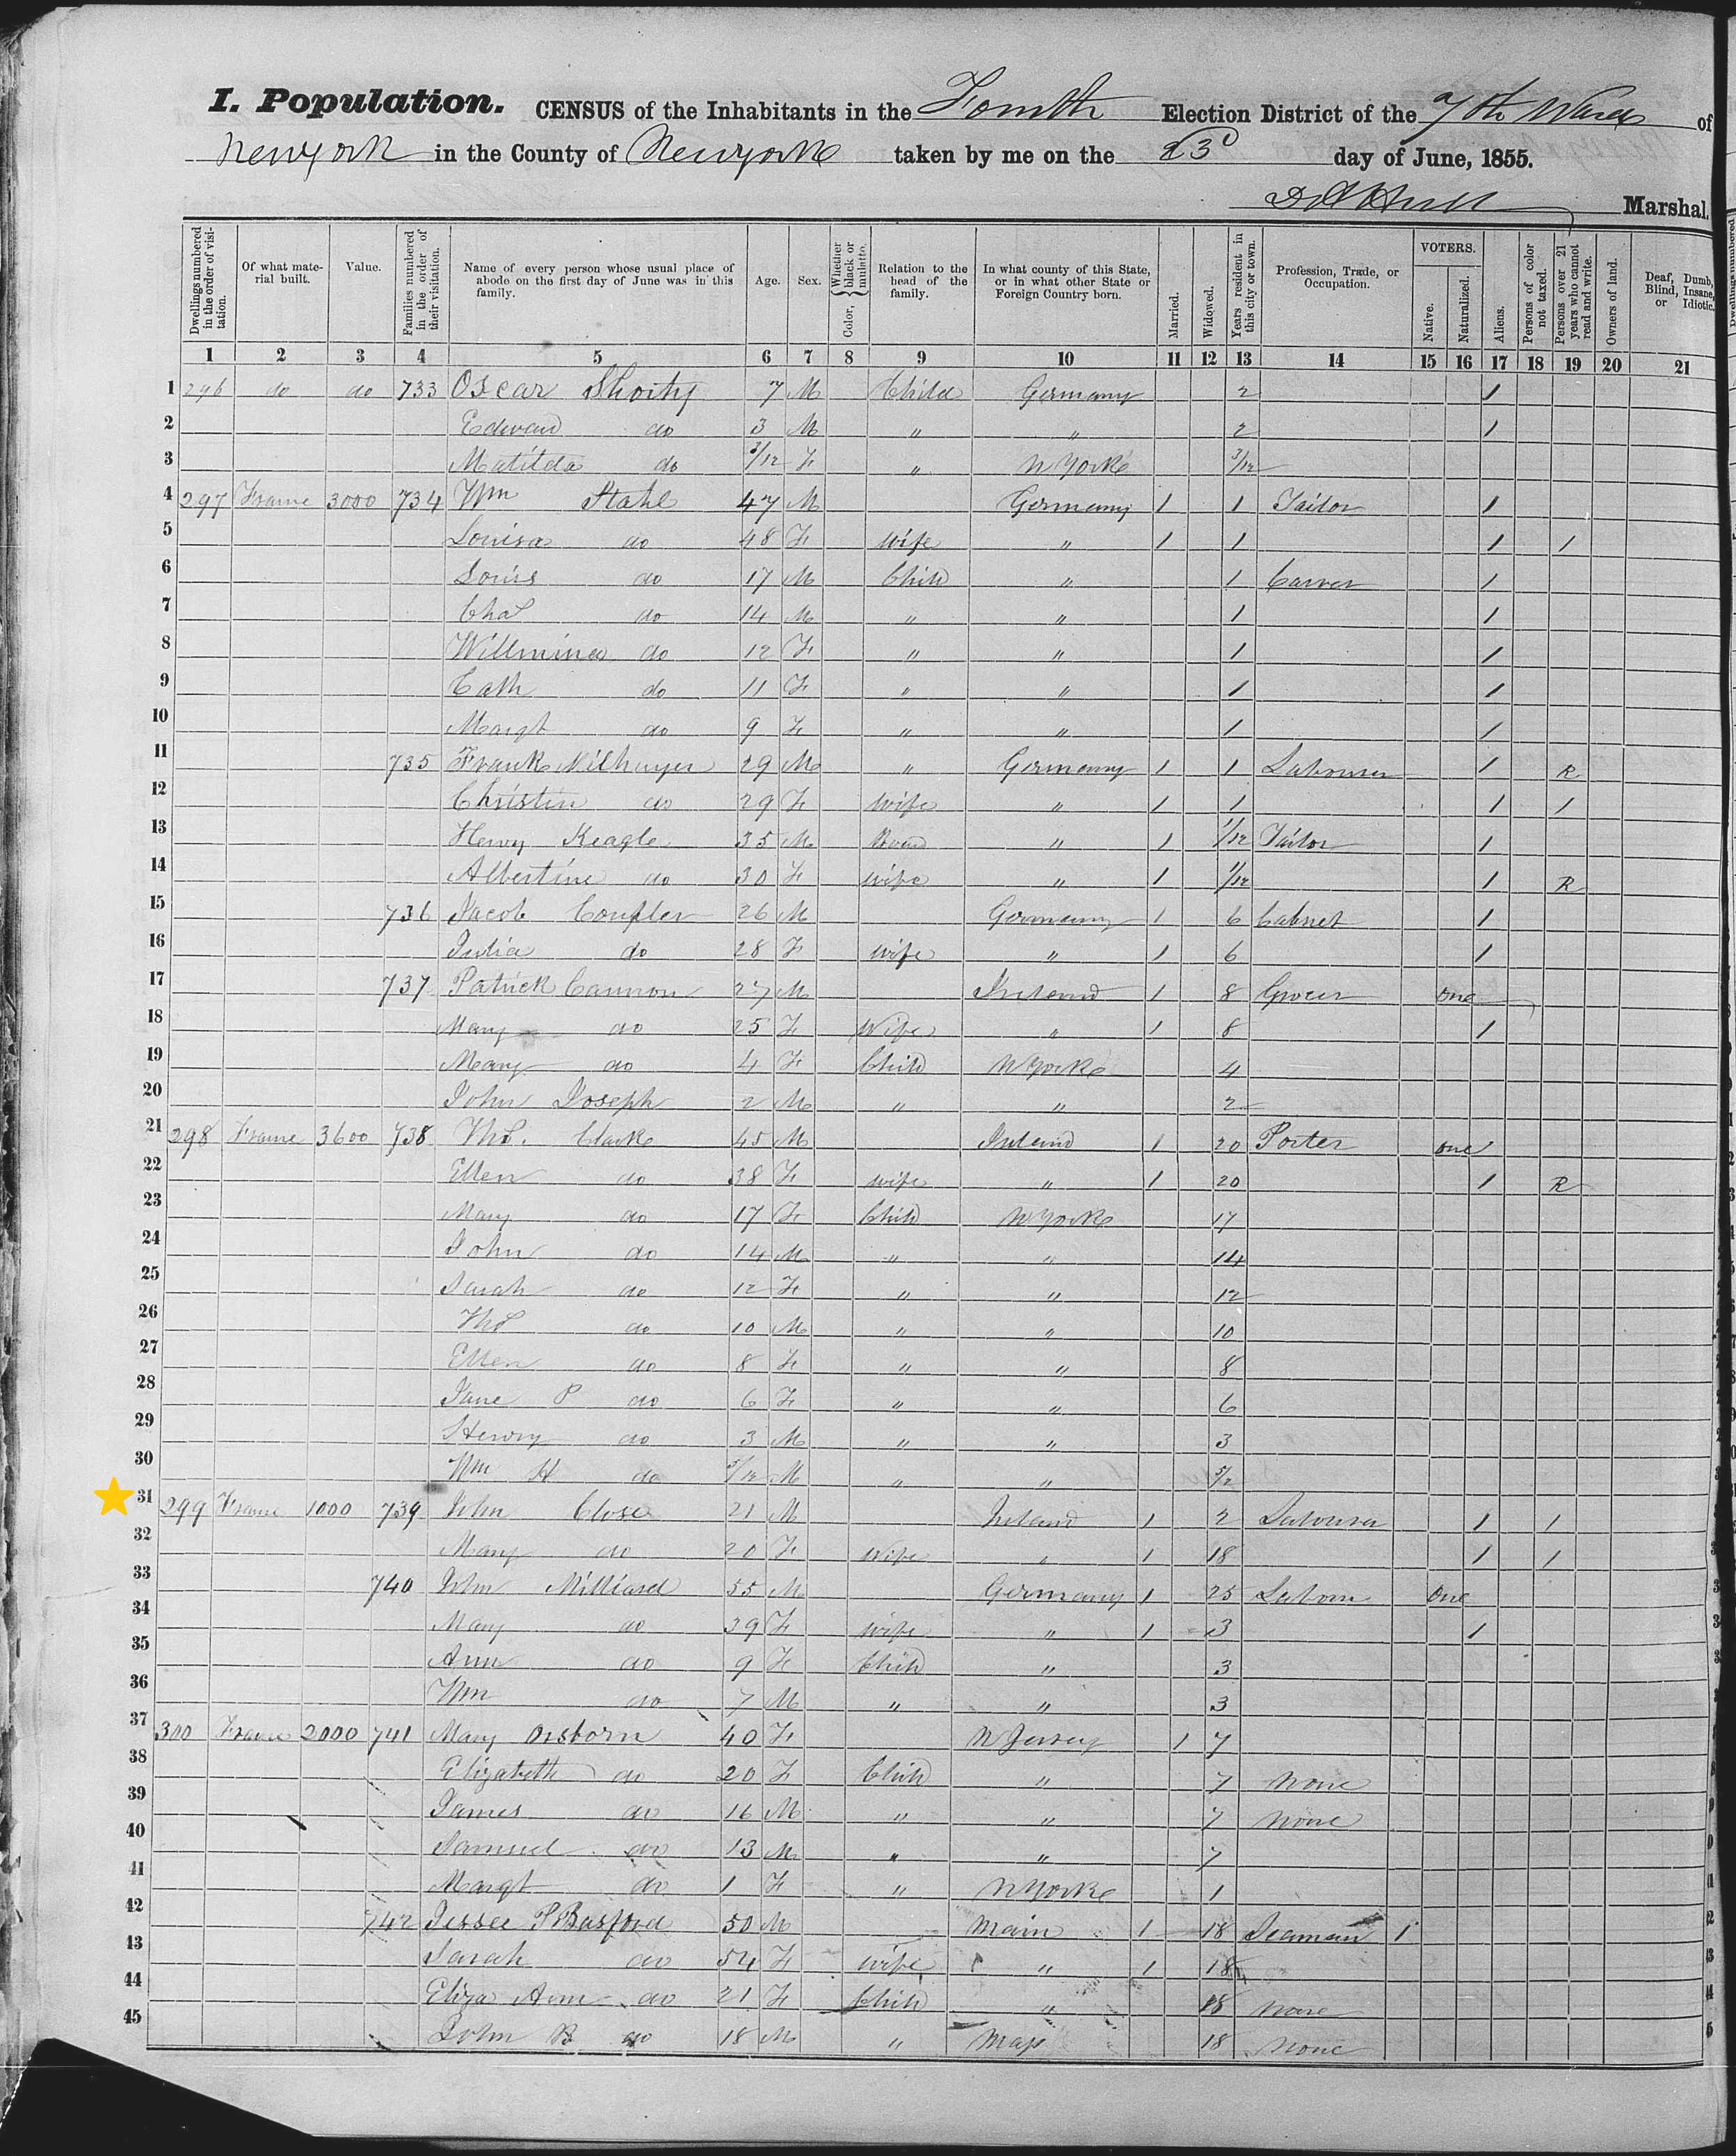 I. Population. CENSUS of the Inhabitants in the Fourth Election District of the 7th Ward of
New york in the County of New york taken by me on the 23d day of June, 1855.
Marshal.
Dwellings numbered in the order of visitation. Of what material built. Value. Families numbered in the order of their visitation. Name of every person whose usual place of abode on the first day of June was in this family. Age. Sex. Color, Whether black or mulatto. Relation to the head of the family. In what county of this State, or in what other State or Foreign Country born. Married. Widowed. Years resident in this city or town. Profession, Trade, or Occupation. VOTERS. Native. Naturalized. Aliens. Persons of color not taxed. Persons over 21 years who cannot read and write. Owners of land. Deaf, Dumb, Blind, Insane, or Idiotic.
1 2 3 4 5 6 7 8 9 10 11 12 13 14 15 16 17 18 19 20 21
1 296 do do 733 Oscar 7 M Child Germany 2 1
2 Edward do 3 M " " 2 1
3 Matilda do 3/12 F " N York 3/12
4 297 Frame 3000 734 Wm Stahl 47 M Germany 1 1 Tailor 1
5 Louisa do 48 F wife " 1 1 1 1
6 Louis do 17 M Child " 1 Carver 1
7 Chas do 14 M " " 1 1
8 Willmina do 12 F " " 1 1
9 Cath do 11 F " " 1 1
10 Margt do 9 F " " 1 1
11 735 Frank 29 M " Germany 1 1 Labourer 1 R
12 Christin do 29 F wife " 1 1 1 1
13 Henry Keagle 35 M Board " 1 1/12 Tailor 1
14 Albertine do 30 F wife " 1 1/12 1 R
15 736 Jacob 26 M Germany 1 6 Cabnet 1
16 Julia do 28 F wife " 1 6 1
17 737 Patrick Cannon 27 M Ireland 1 8 Grocer one
18 Mary do 25 F Wife " 1 8 1
19 Mary do 4 F Child N York 4
20 John Joseph 2 M " " 2
21 298 Frame 3600 738 Thos. Clark 45 M Ireland 1 20 Porter one
22 Ellen do 38 F wife " 1 20 1 R
23 Mary do 17 F Child N York 17
24 John do 14 M " " 14
25 Sarah do 12 F " " 12
26 Thos do 10 M " " 10
27 Ellen do 8 F " " 8
28 Jane P do 6 F " " 6
29 Henry do 3 M " " 3
30 Wm H do 5/12 M " " 5/12
31 299 Frame 1000 739 John Close 21 M Ireland 1 2 Labourer 1 1
32 Mary do 20 F wife " 1 18 1 1
33 740 John Milliard 55 M Germany 1 25 Labour one
34 Mary do 39 F wife " 1 3 1
35 Ann do 9 F Child " 3
36 Wm do 7 M " " 3
37 300 Frame 2000 741 Mary Osborn 40 F N Jersey 1 7
38 Elizabeth do 20 F Child " 7 none
39 James do 16 M " " 7 none
40 Samuel do 13 M " " 7
41 Margt do 1 F " N York 1
42 742 Jessee P Basford 50 M Main 1 18 Seaman 1
43 Sarah do 54 F wife " 1 18
44 Eliza Ann do 21 F Child " 18 none
45 John B do 18 M " Mass 18 none